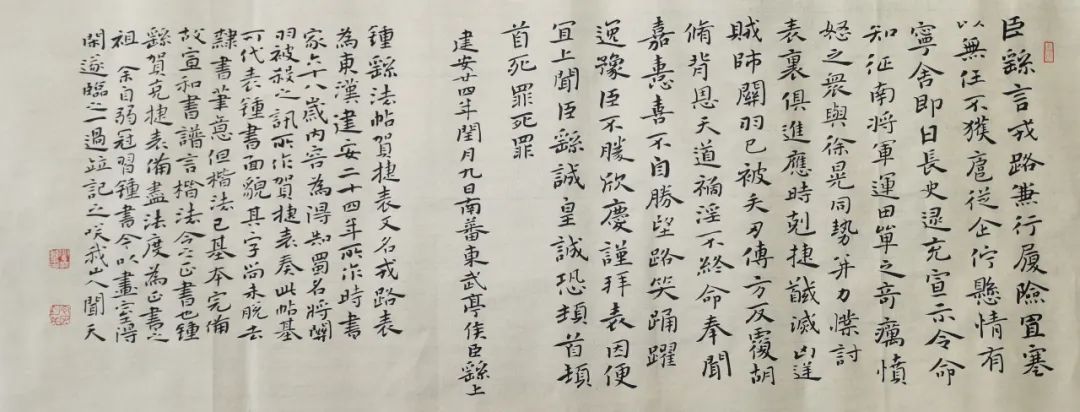 臣繇言戎路兼行履險冒寒
以無任不獲扈從企佇懸情有
寧舍即日長史逯充宣示令命
知征南將軍運田單之奇癘憤
怒之衆與徐晃同勢并力撲討
表裏俱進應時剋捷馘滅凶逆
賊帥關羽已被矢刃傅方反覆胡
脩背恩天道禍淫不終命奉聞
嘉憙喜不自勝望路笑踊躍
逸豫臣不勝欣慶謹拜表因便
宜上聞臣繇誠皇誠恐頓首頓
首死罪死罪
建安廿四年閏月九日南蕃東武亭侯臣繇上
鍾繇法帖賀捷表又名戎路表
為東漢建安二十四年所作時書
家六十八歲内容為得知蜀名將關
羽被殺之訊所作賀捷表奏此帖基
可代表鍾書面貌其字尚未脫去
隸書筆意但楷法已基本完備
故宣和書譜言楷法今之正書也鍾
繇賀克捷表備盡法度為正書之
祖 余自弱冠習鍾書今以畫雲得
閑遂臨之一過並記之咲我山人聞天